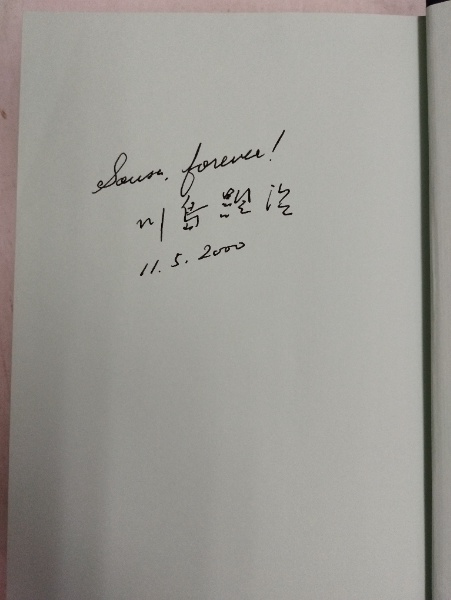 Sousa, forever!
川島
11.5.2000